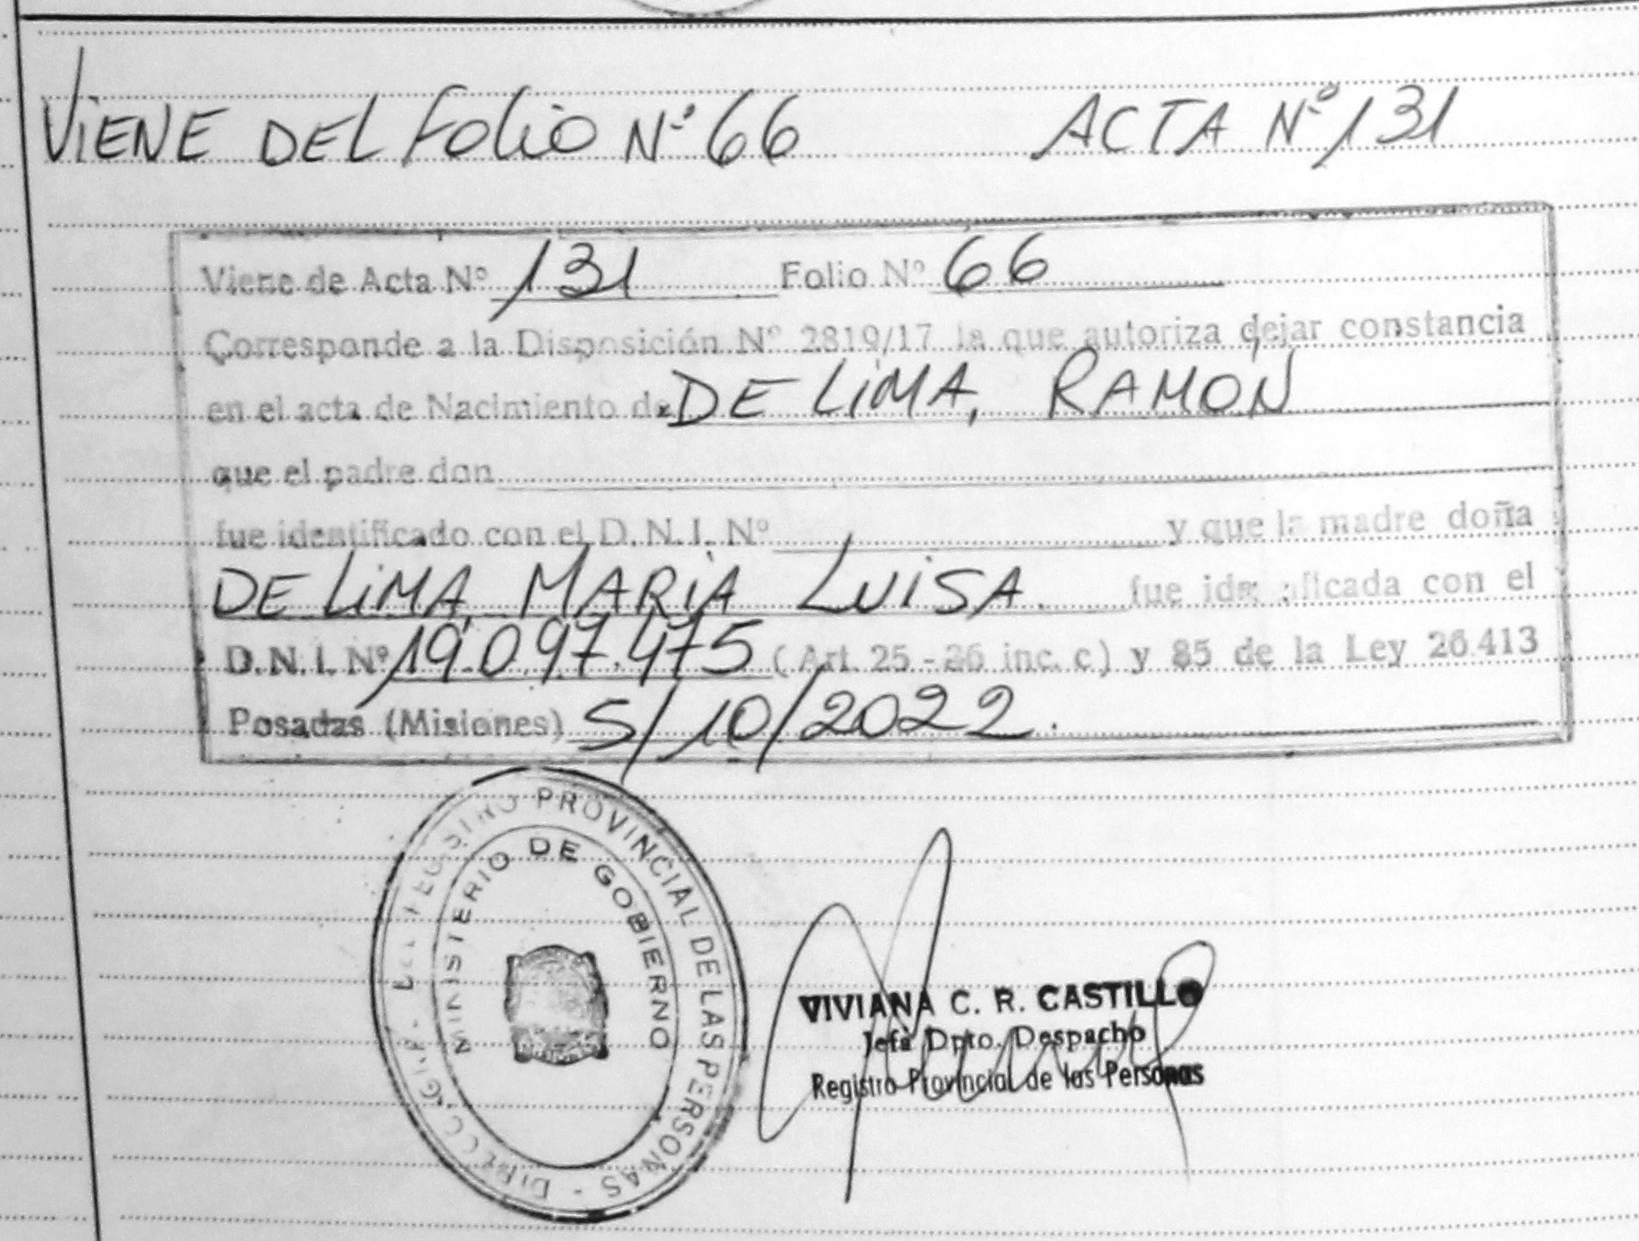 VIENE DEL FOLIO Nº 66 ACTA Nº 131
Viene de Acta Nº 131 Folio Nº 66
Corresponde a la Disposición Nº 2819/17 la que autoriza dejar constancia
en el acta de Nacimiento de DE LIMA, RAMON
que el padre don
fue identificado con el D.N.I. Nº y que la madre doña
DE LIMA, MARIA LUISA. fue identificada con el
D.N.I. Nº 19.097.475 (Art. 25 - 26 inc. c) y 85 de la Ley 26.413
Posadas (Misiones) 5/10/2022.
REGISTRO PROVINCIAL DE LAS PERSONAS -
MINISTERIO DE GOBIERNO
VIVIANA C. R. CASTILLO
Jefa Dpto. Despacho
Registro Provincial de las Personas